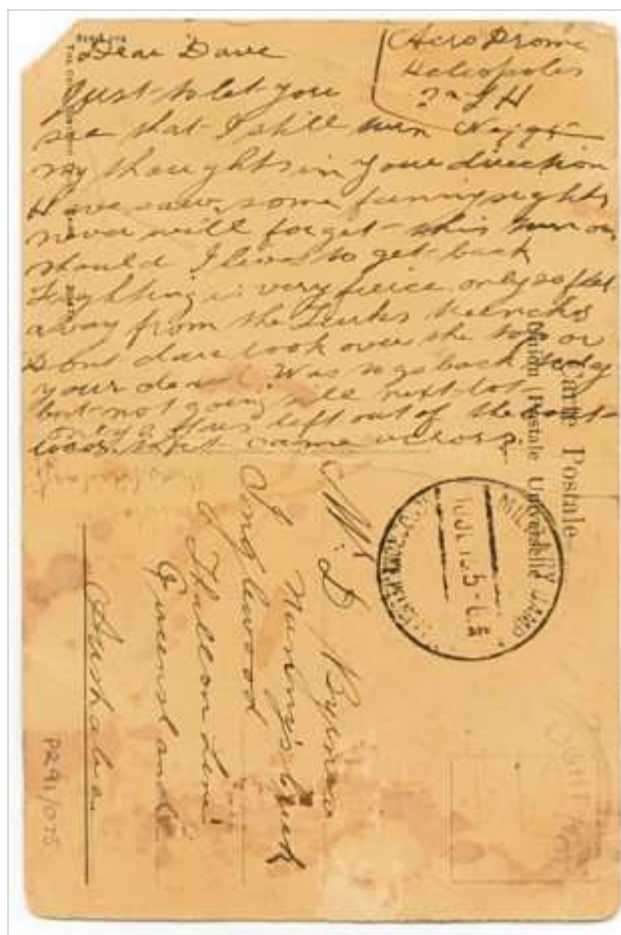 Aerodrome
Heliopoles
Dear Dave
Just to let you
see that I still turn
my thoughts in your direction
Have saw some funny sights
never will forget this turn out
should I live to get back
Fighting is very fierce only 20 feet
away from the Turks trenches
Dont dare look over the top or
your dead. Was to go back today
but not going till next lot
only a few left out of the boat
loads that came across.
Carte Postale
Union Postale Universelle
Mr D
Inglewood
Thallon Line
Queensland
Australia
P291/075